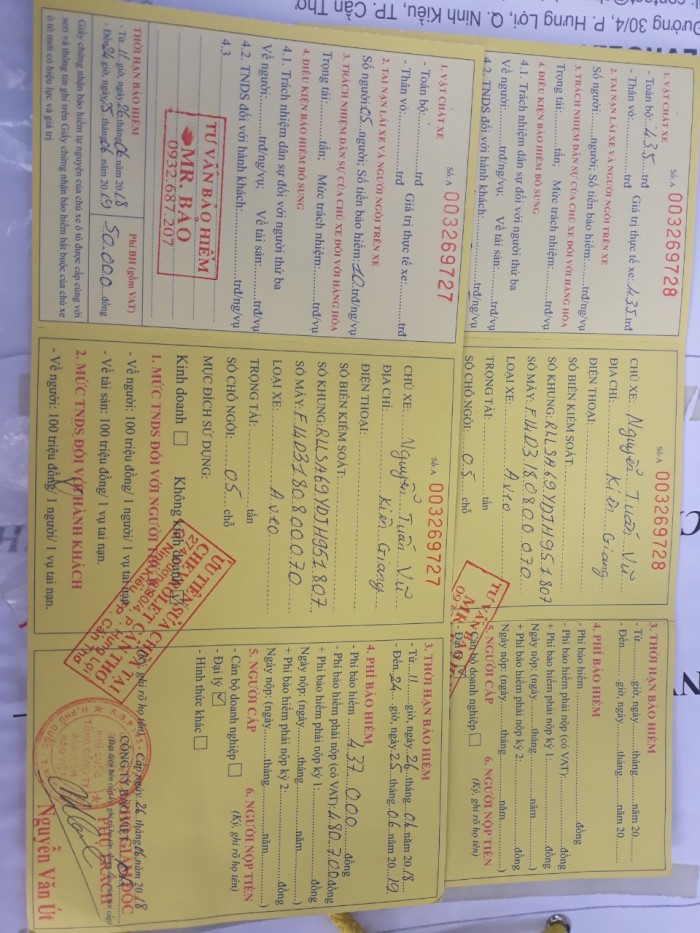 Đường 30/4, P. Hưng Lợi, Q. Ninh Kiều, TP. Cần Thơ
Số A 003269728
1. VẬT CHẤT XE
- Toàn bộ: 435 trđ Giá trị thực tế xe: 435 trđ
- Thân vỏ: trđ
2. TAI NẠN LÁI XE VÀ NGƯỜI NGỒI TRÊN XE
Số người: người; Số tiền bảo hiểm: trđ/ng/vụ
3. TRÁCH NHIỆM DÂN SỰ CỦA CHỦ XE ĐỐI VỚI HÀNG HÓA
Trọng tải: tấn; Mức trách nhiệm: trđ/vụ
4. ĐIỀU KIỆN BẢO HIỂM BỔ SUNG
4.1. Trách nhiệm dân sự đối với người thứ ba
Về người: trđ/ng/vụ; Về tài sản: trđ/vụ
4.2. TNDS đối với hành khách: trđ/ng/vụ
Số A 003269728
CHỦ XE: Nguyễn Tuấn Vũ
ĐỊA CHỈ: Kiên Giang
ĐIỆN THOẠI:
SỐ BIỂN KIỂM SOÁT:
SỐ KHUNG: RLLSA69YDJH951807
SỐ MÁY: F14D3180800070
LOẠI XE: Aveo
TRỌNG TẢI: tấn
SỐ CHỖ NGỒI: 05 chỗ
3. THỜI HẠN BẢO HIỂM
- Từ giờ, ngày tháng năm 20
- Đến giờ, ngày tháng năm 20
4. PHÍ BẢO HIỂM
- Phí bảo hiểm đồng
- Phí bảo hiểm phải nộp (có VAT): đồng
+ Phí bảo hiểm phải nộp kỳ 1: đồng
Ngày nộp: (ngày tháng năm)
+ Phí bảo hiểm phải nộp kỳ 2: đồng
Ngày nộp: (ngày tháng năm)
5. NGƯỜI CẤP 6. NGƯỜI NỘP TIỀN
- Cán bộ doanh nghiệp (Ký, ghi rõ họ tên)
- Đại lý
Số A 003269727
1. VẬT CHẤT XE
- Toàn bộ: trđ Giá trị thực tế xe: trđ
- Thân vỏ: trđ
2. TAI NẠN LÁI XE VÀ NGƯỜI NGỒI TRÊN XE
Số người 05 người; Số tiền bảo hiểm: 10 trđ/ng/vụ
3. TRÁCH NHIỆM DÂN SỰ CỦA CHỦ XE ĐỐI VỚI HÀNG HÓA
Trọng tải: tấn; Mức trách nhiệm: trđ/vụ
4. ĐIỀU KIỆN BẢO HIỂM BỔ SUNG
4.1. Trách nhiệm dân sự đối với người thứ ba
Về người: trđ/ng/vụ; Về tài sản: trđ/vụ
4.2. TNDS đối với hành khách: trđ/ng/vụ
4.3
TƯ VẤN BẢO HIỂM
MR. BẢO
0932.687.207
THỜI HẠN BẢO HIỂM Phí BH (gồm VAT)
- Từ 11 giờ, ngày 26 tháng 06 năm 2018
- Đến 24 giờ, ngày 25 tháng 06 năm 2019 50.000 đồng
Giấy chứng nhận bảo hiểm tự nguyện của chủ xe ô tô được cấp cùng với
seri và thông tin ghi trên Giấy chứng nhận bảo hiểm bắt buộc của chủ xe
ô tô mới có hiệu lực và giá trị
Số A 003269727
CHỦ XE: Nguyễn Tuấn Vũ
ĐỊA CHỈ: Kiên Giang
ĐIỆN THOẠI:
SỐ BIỂN KIỂM SOÁT:
SỐ KHUNG: RLLSA69YDJH951807
SỐ MÁY: F14D3180800070
LOẠI XE: Aveo
TRỌNG TẢI: tấn
SỐ CHỖ NGỒI: 05 chỗ
MỤC ĐÍCH SỬ DỤNG:
Kinh doanh Không kinh doanh
1. MỨC TNDS ĐỐI VỚI NGƯỜI THỨ BA
- Về người: 100 triệu đồng/ 1 người/ 1 vụ tai nạn.
- Về tài sản: 100 triệu đồng/ 1 vụ tai nạn.
2. MỨC TNDS ĐỐI VỚI HÀNH KHÁCH
- Về người: 100 triệu đồng/ 1 người/ 1 vụ tai nạn.
ƯU TIÊN SỬA CHỮA TẠI
CHEVROLET CẦN THƠ
3. THỜI HẠN BẢO HIỂM
- Từ 11 giờ, ngày 26 tháng 06 năm 2018
- Đến 24 giờ, ngày 25 tháng 06 năm 2019
4. PHÍ BẢO HIỂM
- Phí bảo hiểm 437.000 đồng
- Phí bảo hiểm phải nộp (có VAT): 480.700 đồng
+ Phí bảo hiểm phải nộp kỳ 1: đồng
Ngày nộp: (ngày tháng năm)
+ Phí bảo hiểm phải nộp kỳ 2: đồng
Ngày nộp: (ngày tháng năm)
5. NGƯỜI CẤP 6. NGƯỜI NỘP TIỀN
- Cán bộ doanh nghiệp (Ký, ghi rõ họ tên)
- Đại lý
- Hình thức khác
Cấp ngày 26 tháng 06 năm 2018
CÔNG TY BẢO VIỆT
GIÁM ĐỐC
Nguyễn Văn Út